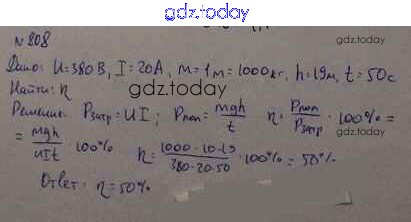 gdz.today
gdz.today
№ 808
Дано: U=380В, I=20А, m=1т=1000кг, h=19м, t=50с
Найти: η
gdz.today
Решение: Pзатр=UI; Pпол=mgh/t η=Pпол/Pзатр·100%=
=mgh/UIt·100% η=1000·10·19/380·20·50·100%=50%
Ответ: η=50%
gdz.today